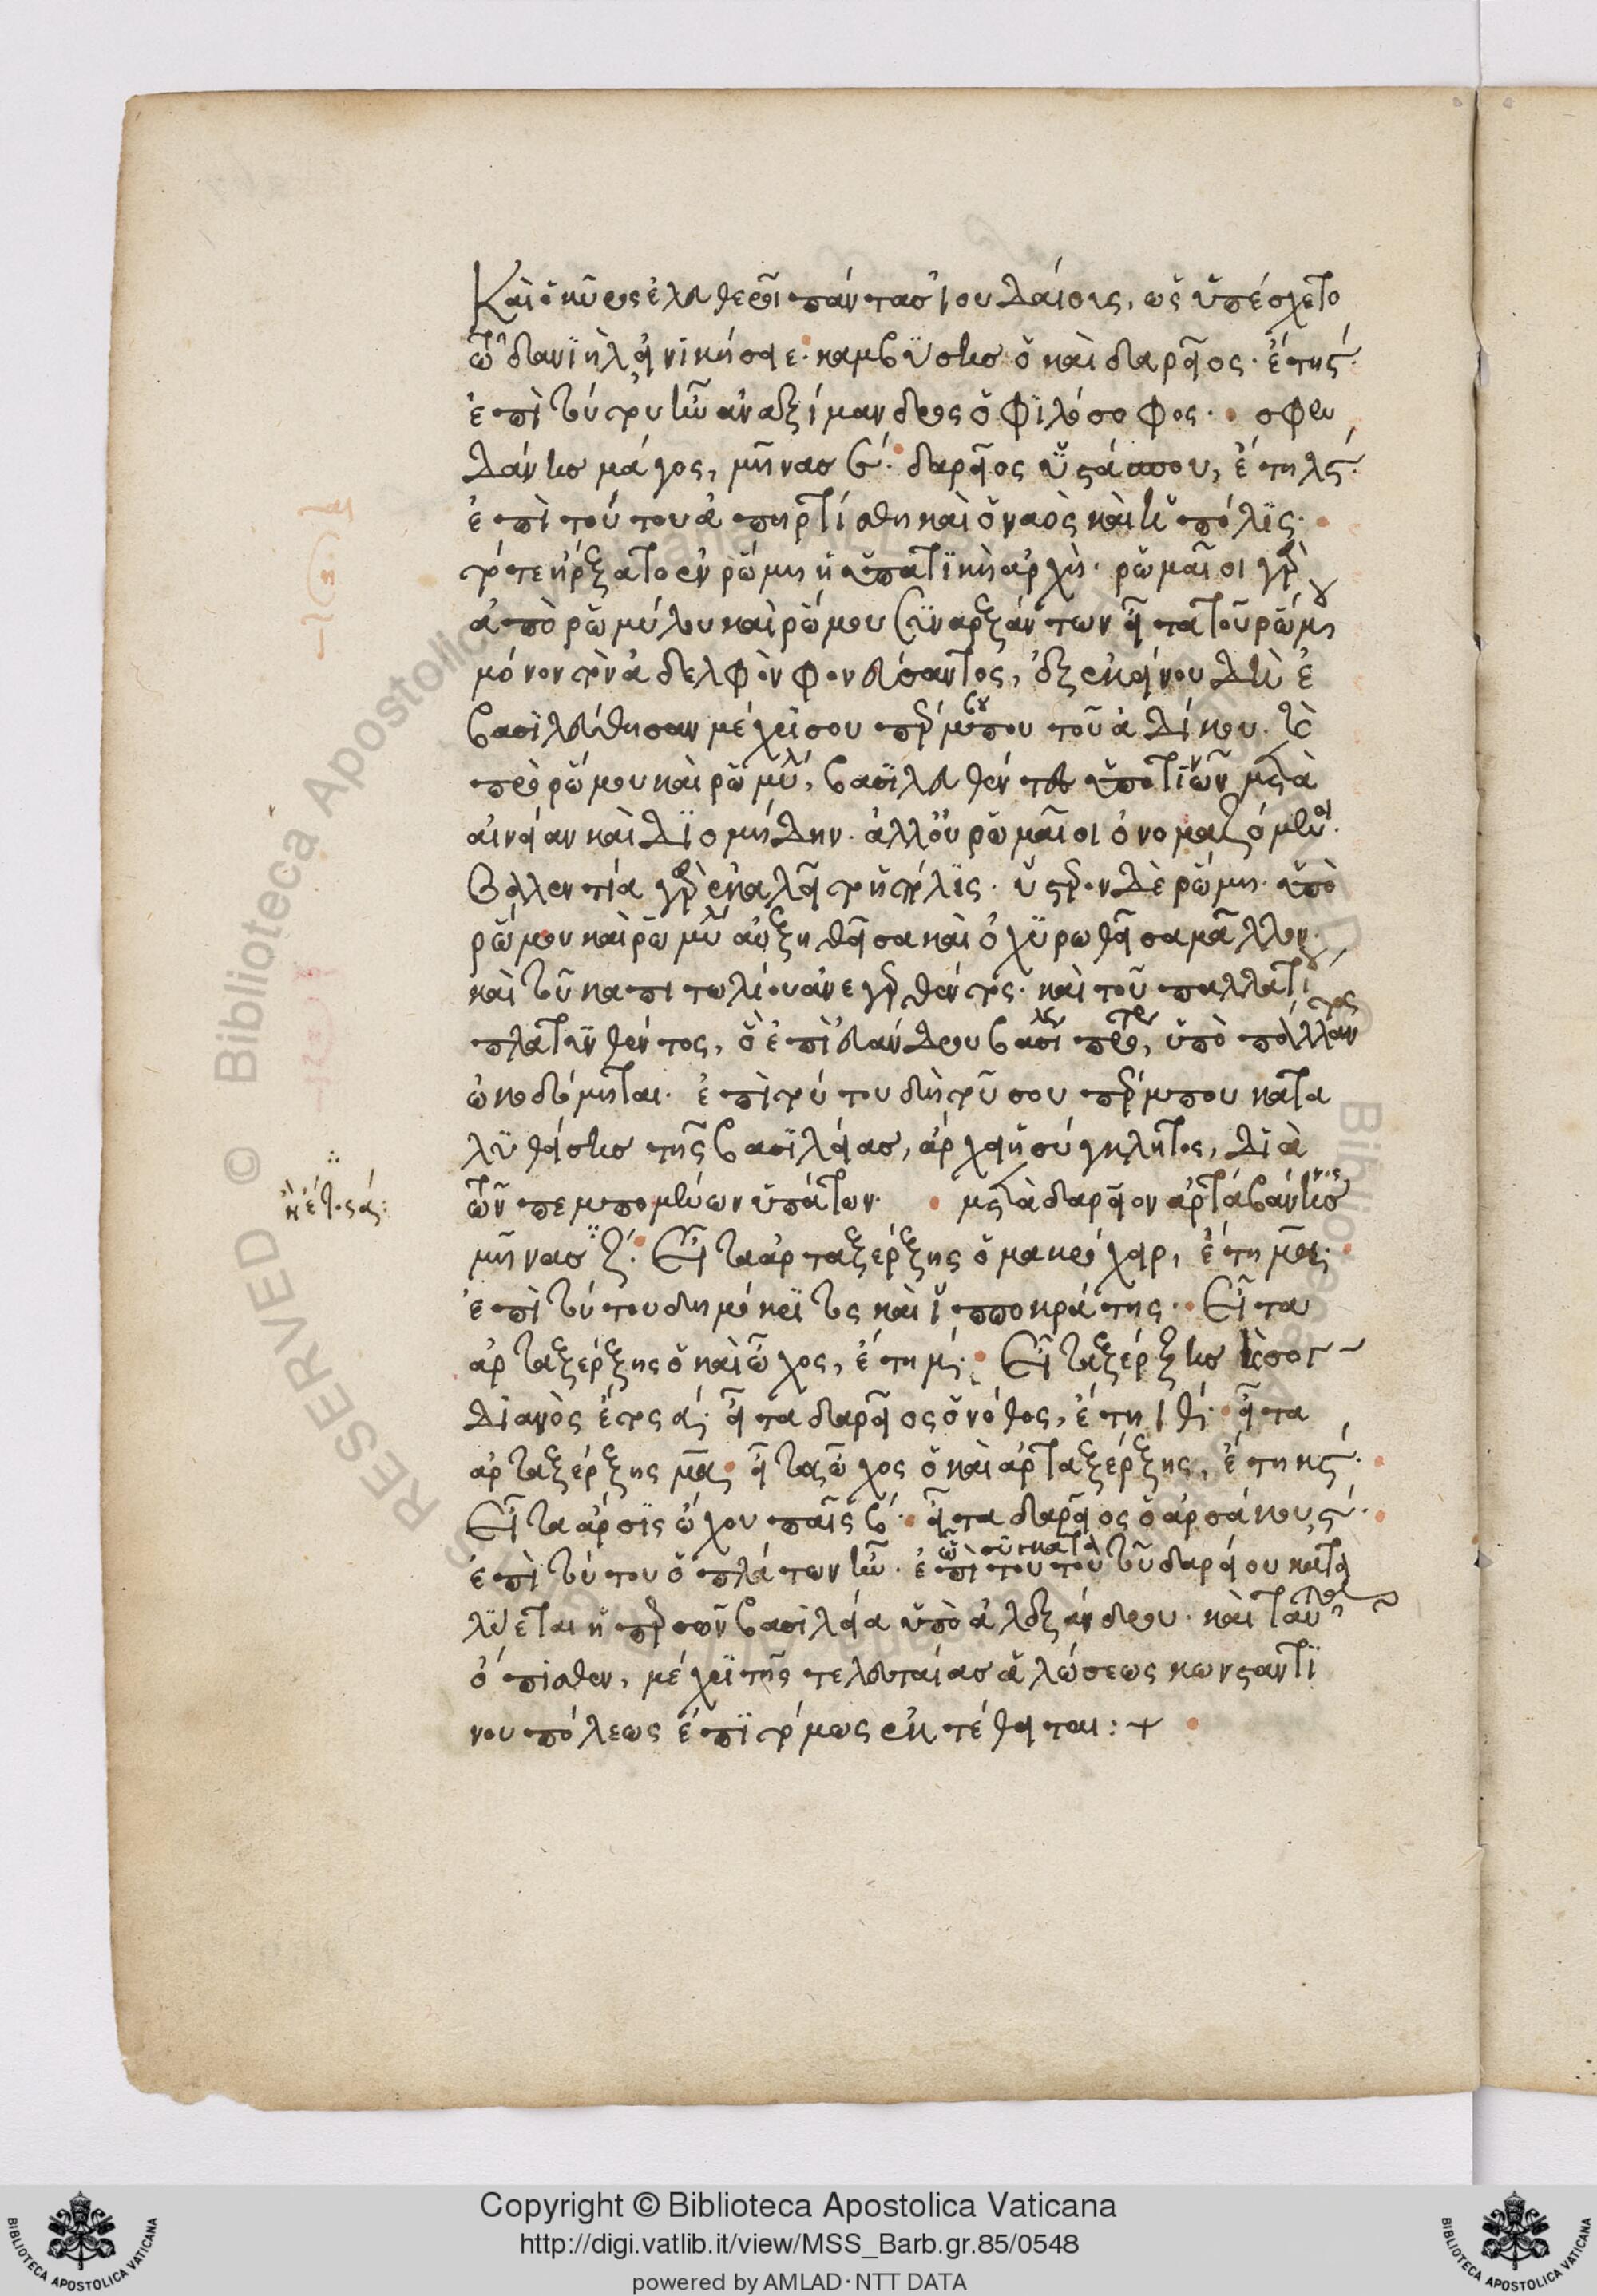 Καὶ ὁ κῦρος ἐλευθεροῖ πάντας ἰουδαίους, ὡς ὑπέσχετο
τῷ δανιὴλ εἰ νικήσαι· καμβύσης ὁ καὶ δαρεῖος· ἔτη ς΄·
ἐπὶ τούτου ἦν ἀναξίμανδρος ὁ φιλόσοφος· σφεν
δάνης μάγος, μῆνας ζ΄· δαρεῖος ὑστάσπου, ἔτη λς΄·
ἐπὶ τούτου ἀπηρτίσθη καὶ ὁ ναὸς καὶ ἡ πόλις·
τότε ἤρξατο ἐν ῥώμη ἡ ὑπατικὴ ἀρχὴ· ῥωμαῖοι γὰρ
ἀπὸ ῥωμύλου καὶ ῥώμου συναρξάντων εἶτα τοῦ ῥώμου
μόνον τὸν ἀδελφὸν φονεύσαντος, ἐξ ἐκείνου δὴ ἐ
βασιλεύθησαν μέχρι σου πέρμπου τοῦ ἀδίκου· τὸ
πρὸ ῥώμου καὶ ῥωμύλου, βασιλευθέντες ὑπό τινων μετὰ
αἰνείαν καὶ διομήδην· ἀλλ' οὐ ῥωμαῖοι ὀνομαζόμενοι·
βαλλεντία γὰρ ἐκαλεῖτο ἡ πόλις· ὕστερον δὲ ῥώμη· ὑπὸ
ῥώμου καὶ ῥωμύλου αὐξηθεῖσα καὶ ὀχυρωθεῖσα μᾶλλον·
καὶ τοῦ καπιτωλίου ἀνεγερθέντος· καὶ τοῦ παλλατίου
πλατυνθέντος, ὃ ἐπὶ εὐάνδρου βασιλέως πρότερον, ὑπὸ πάλλαντος
ὠκοδόμηται· ἐπὶ τούτου δὴ τοῦ σου πέρμπου κατα
λυθείσης τῆς βασιλείας, ἄρχει ἡ σύγκλητος, διὰ
τῶν πεμπομένων ὑπάτων· μετὰ δαρεῖον ἀρτάβανης νος
ἢ ἔτος α΄:
μῆνας ζ΄· Εἶτα ἀρταξέρξης ὁ μακρόχειρ, ἔτη μα·
ἐπὶ τούτου δημόκριτος καὶ ἱπποκράτης· Εἶτα
ἀρταξέρξης ὁ καὶ ὦχος, ἔτη μ΄· Εἶτα ξέρξης
διανὸς ἔτος α΄· εἶτα δαρεῖος ὁ νόθος, ἔτη ιθ΄· εἶτα
ἀρταξέρξης μα· εἶτα ὦχος ὁ καὶ ἀρταξέρξης, ἔτη κς΄·
Εἶτα ἄρσις ὤχου παῖς· εἶτα δαρεῖος ὁ ἀρσάκου ς΄·
ἐπὶ τούτου ὁ πλάτων ἦν· ἐπὶ τούτου τοῦ δαρείου κατα
λύεται ἡ περσῶν βασιλεία ὑπὸ ἀλεξάνδρου· καὶ ταῦτα
ὄπισθεν, μέχρι τῆς τελευταίας ἁλώσεως κωνσταντι
νουπόλεως ἐπιτόμως ἐκτέθειται: +
RESERVED © Biblioteca Apostolica
Copyright © Biblioteca Apostolica Vaticana
http://digi.vatlib.it/view/MSS_Barb.gr.85/0548
powered by AMLAD·NTT DATA
BIBLIOTECA APOSTOLICA VATICANA
BIBLIOTECA APOSTOLICA VATICANA